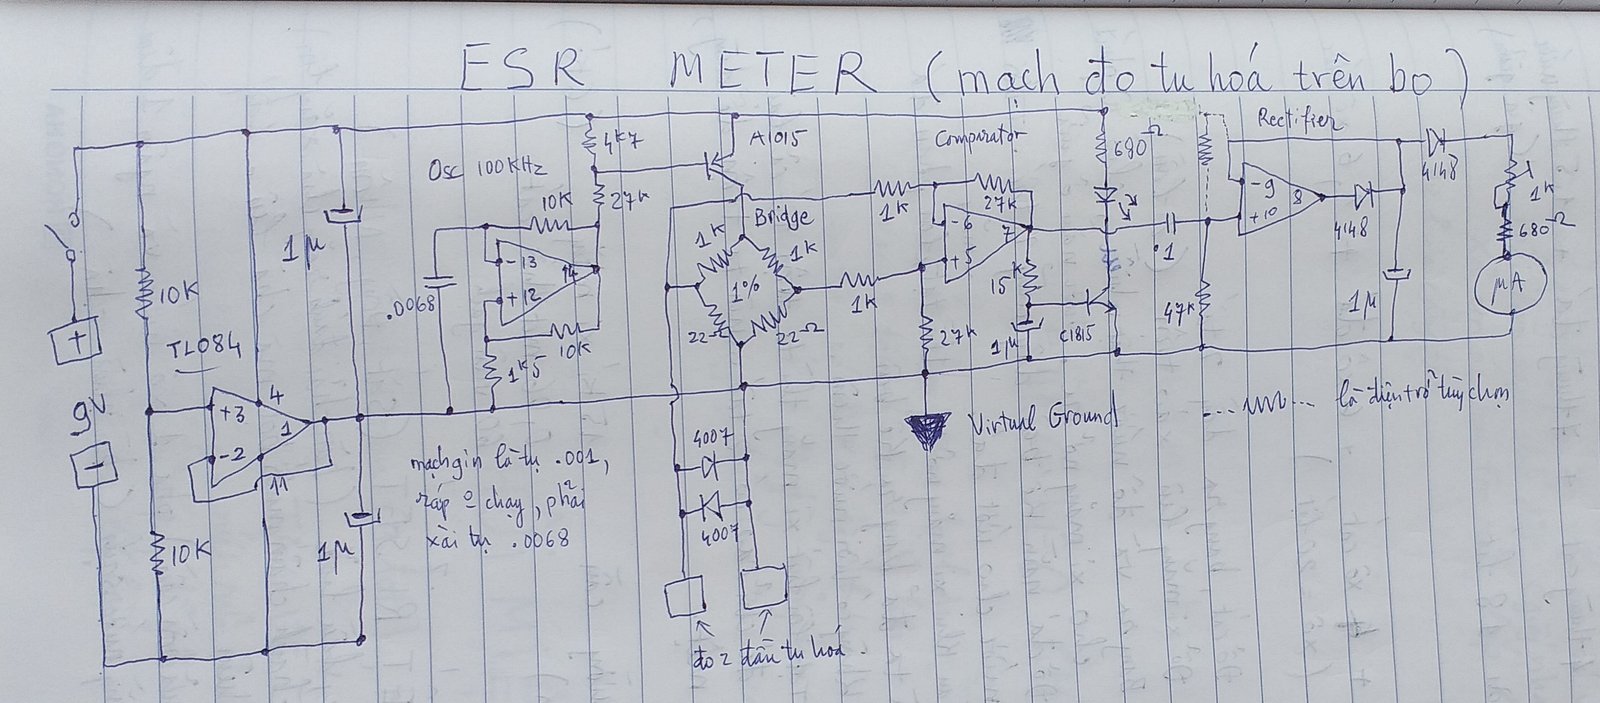 ESR METER (mạch đo tụ hoá trên bo)
Osc 100KHz
4k7
A1015
Comparator
680Ω
Rectifier
10K
27K
1K
27K
4148
1µ
Bridge
1K
1K
-13
+12
14
-6
+5
7
-9
+10
8
4148
1K
680Ω
.0068
1%
1K
15K
.1
µA
10K
22Ω
22Ω
1µ
C1815
47K
1µ
27K
10K
1K5
TL084
+
9V
-
+3
-2
4
1
11
Virtual Ground
...... là điện trở tùy chọn
mạch gin là tụ .001,
ráp 0 chạy, phải
xài tụ .0068
4007
4007
10K
1µ
đo 2 đầu tụ hoá.